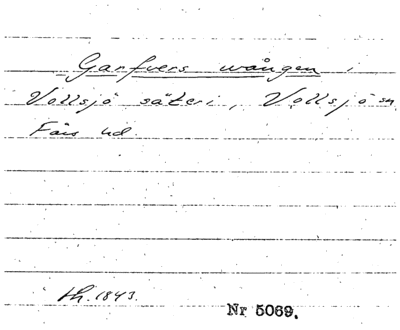 Garfvers wången i
Vollsjö säteri, Vollsjö sn
Färs hd
th. 1843.
Nr 5069.